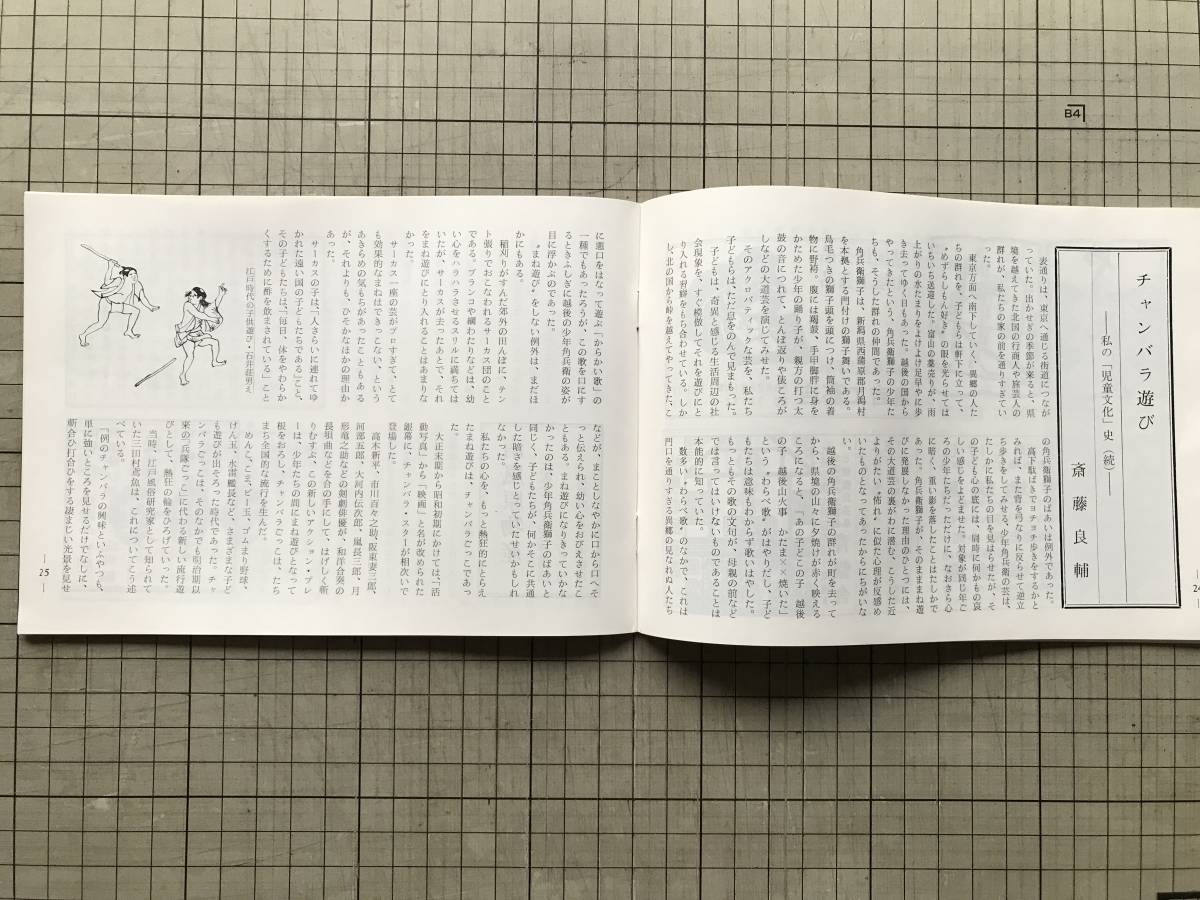 B4
チャンバラ遊び
――私の「児童文化」史(続)――
斎藤良輔
表通りは、東京へ通じる街道につなが
っていた。出かせぎの季節が来ると、県
境を越えてきた北国の行商人や旅芸人の
群れが、私たちの家の前を通りすぎてい
った。
東京方面へ南下していく、異郷の人た
ちの群れを、子どもらは軒下に立って、
〝めずらしもん好き〟の眼を光らせては
いちいち送迎した。富山の薬売りが、雨
上がりの水たまりをよけよけ足早やに歩
き去ってゆく日もあった。越後の国から
やってきたという、角兵衛獅子の少年た
ちも、そうした群れの仲間であった。
角兵衛獅子は、新潟県西蒲原郡月潟村
を本拠とする門付けの獅子舞いである。
鳥毛つきの獅子頭を頭につけ、筒袖の着
物に野袴。腹には羯鼓、手甲脚胖に身を
かためた少年の踊り子が、親方の打つ太
鼓の音につれて、とんぼ返りや俵ころが
しなどの大道芸を演じてみせた。
そのアクロバティックな芸を、私たち
子どもらは、ただ息をのんで見まもった。
子どもは、奇異と感じる生活周辺の社
会現象を、すぐ模倣してそれを遊びにと
り入れる習癖をもち合わせている。しか
し、北の国から峠を越えてやってきた、こ
の角兵衛獅子のばあいは、例外であった。
高下駄ばきでヨチヨチ歩きをするかと
みれば、また背を弓なりに反らせて逆立
ち歩きをしてみせる、少年角兵衛の芸は、
たしかに私たちの目を見はらせたが、そ
の子どもを心の底には、同時に何かもの哀
しい感じをよどませた。対象が同じ年ご
ろの少年たちだっただけに、なおさら心
に暗く、重い影を落したことはたしかで
あった。角兵衛獅子が、そのまままね遊
びに発展しなかった理由のひとつには、
その大道芸の裏がわに潜む、こうした近
よりがたい〝怖れ〟に似た心理が反感め
いたものとなってあったからにちがいな
い。
越後の角兵衛獅子の群れが町を去って
から、県境の山々に夕焼けが赤く映える
ころになると、「あの子どこの子 越後
の子 越後山火事 かたま××焼いた」
という〝わらべ歌〟がはやりだし、子ど
もたちは意味もわからず歌いはやした。
もっともその歌の文句が、母親の前など
では言ってはいけないものであることは
本能的に知っていた。
数多い〝わらべ歌〟のなかで、これは
門口を通りすぎる異郷の見なれぬ人たち
24
に悪口をはなって遊ぶ「からかい歌」の
一種でもあったろうが、この歌を口にす
るときふしぎに越後の少年角兵衛の姿が
目に浮かぶのであった。
〝まね遊び〟をしない例外は、まだほ
かにもある。
稲刈りがすんだ郊外の田んぼに、テン
ト張りでおこなわれるサーカス団のこと
である。ブランコや綱わたりなどは、幼
い心をハラハラさせるスリルに満ちては
いたが、サーカスが去ったあとで、それ
をまね遊びにとり入れることはあまりな
かった。
サーカス一座の芸がプロすぎて、とて
も効果的なまねはできっこない、という
あきらめの気もちがあったこともある
が、それよりも、ひそかなほかの理由か
あった。
サーカスの子は、「人さらいに連れてゆ
かれた遠い国の子どもたちである」こと、
その子どもたちは、「毎日、体をやわらか
くするために酢を飲まされている」こと
江戸時代の子供遊び・石井荘男え
などが、まことしなやかに口から口へそ
っと伝えられ、幼い心をおびえさせたこ
ともある。まね遊びになりきっていかな
かったのは、少年角兵衛獅子のばあいと
同じく、子どもたちが、何かそこに共通
した暗さを感じとっていたせいかもしれ
なかった。
私たちの心を、もっと熱狂的にとらえ
たまね遊びは、チャンバラごっこであっ
た。
大正末期から昭和初期にかけては、「活
動写真」から「映画」と名が改められた
銀幕に、チャンバラ・スターが相次いで
登場した。
高木新平、市川百々之助、阪東妻三郎、
河部五郎、大河内伝次郎、嵐長三郎、月
形竜之助などの剣劇俳優が、和洋合奏の
長唄曲などを合の手にして、はげしく斬
りむすぶ、この新しいアクション・プレ
ーは、少年たちの間にまね遊びとなって
根をおろし、チャンバラごっこは、たち
まち全国的な流行を生んだ。
めんこ、こま、ビー玉、ゴムまり野球、
けん玉、水雷艦長など、さまざまな子ど
も遊びが出そろった時代であった。チャ
ンバラごっこは、そのなかでも明治期以
来の「兵隊ごっこ」に代わる新しい流行遊
びとして、熱狂の輪をひろげていった。
当時、江戸風俗研究家として知られて
いた三田村鳶魚は、これについてこう述
べている。
「例のチャンバラの興味といふやつも、
単に強いところを見せるだけでなしに、
斬合ひ打合ひをする凄まじい光景を見せ
25